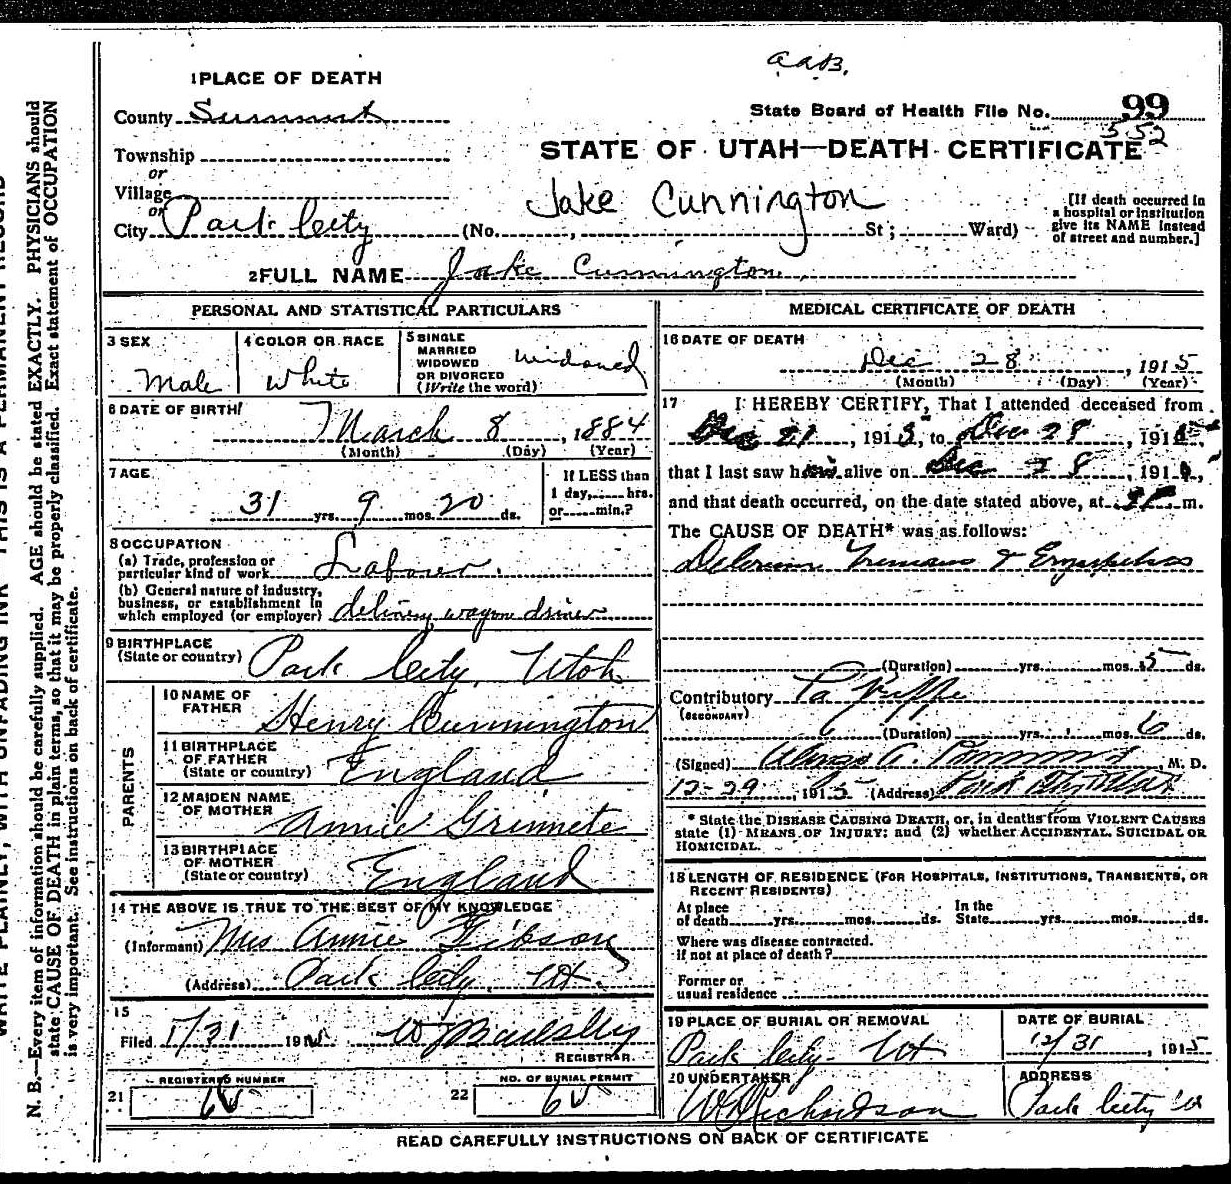 a a B.
1 PLACE OF DEATH
County Summit
State Board of Health File No. 99
552
Township
or
Village
or
City Park City (No. , St ; Ward)
STATE OF UTAH—DEATH CERTIFICATE
Jake Cunnington
[If death occurred in
a hospital or institution
give its NAME instead
of street and number.]
2 FULL NAME Jake Cunnington
PERSONAL AND STATISTICAL PARTICULARS
3 SEX
Male
4 COLOR OR RACE
White
5 SINGLE
MARRIED
WIDOWED
OR DIVORCED
(Write the word)
widowed
6 DATE OF BIRTH
March 8, 1884
(Month) (Day) (Year)
7 AGE
31 yrs. 9 mos. 20 ds.
If LESS than
1 day, hrs.
or min.?
8 OCCUPATION
(a) Trade, profession or
particular kind of work Laborer.
(b) General nature of industry,
business, or establishment in
which employed (or employer) delivery wagon driver
9 BIRTHPLACE
(State or country) Park City, Utah
PARENTS
10 NAME OF
FATHER
Henry Cunnington
11 BIRTHPLACE
OF FATHER
(State or country) England
12 MAIDEN NAME
OF MOTHER
Annie Grinnete
13 BIRTHPLACE
OF MOTHER
(State or country) England
14 THE ABOVE IS TRUE TO THE BEST OF MY KNOWLEDGE
(Informant) Mrs Annie Gibson
(Address) Park City, Ut.
15
Filed 1/31 191
REGISTRAR.
21 REGISTERED NUMBER
22 NO. OF BURIAL PERMIT
MEDICAL CERTIFICATE OF DEATH
16 DATE OF DEATH
Dec 28, 1915
(Month) (Day) (Year)
17 I HEREBY CERTIFY, That I attended deceased from
Dec 21, 1915, to Dec 28, 191
that I last saw him alive on Dec 28, 191
and that death occurred, on the date stated above, at m.
The CAUSE OF DEATH* was as follows:
Delerium Tremans & Erysipelas
(Duration) yrs. mos. 5 ds.
Contributory La Grippe
(SECONDARY)
(Duration) yrs. mos. 6 ds.
(Signed) , M. D.
12-29, 1915 (Address) Park City Utah
* State the DISEASE CAUSING DEATH, or, in deaths from VIOLENT CAUSES
state (1) MEANS OF INJURY; and (2) whether ACCIDENTAL, SUICIDAL OR
HOMICIDAL.
18 LENGTH OF RESIDENCE (FOR HOSPITALS, INSTITUTIONS, TRANSIENTS, OR
RECENT RESIDENTS)
At place
of death yrs. mos. ds.
In the
State yrs. mos. ds.
Where was disease contracted.
if not at place of death?
Former or
usual residence
19 PLACE OF BURIAL OR REMOVAL
Park City - Ut
DATE OF BURIAL
12/31, 1915
20 UNDERTAKER
W Richardson
ADDRESS
Park City Ut
READ CAREFULLY INSTRUCTIONS ON BACK OF CERTIFICATE
WRITE PLAINLY, WITH UNFADING INK—THIS IS A PERMANENT RECORD
N. B.—Every item of information should be carefully supplied. AGE should be stated EXACTLY. PHYSICIANS should
state CAUSE OF DEATH in plain terms, so that it may be properly classified. Exact statement of OCCUPATION
is very important. See instructions on back of certificate.